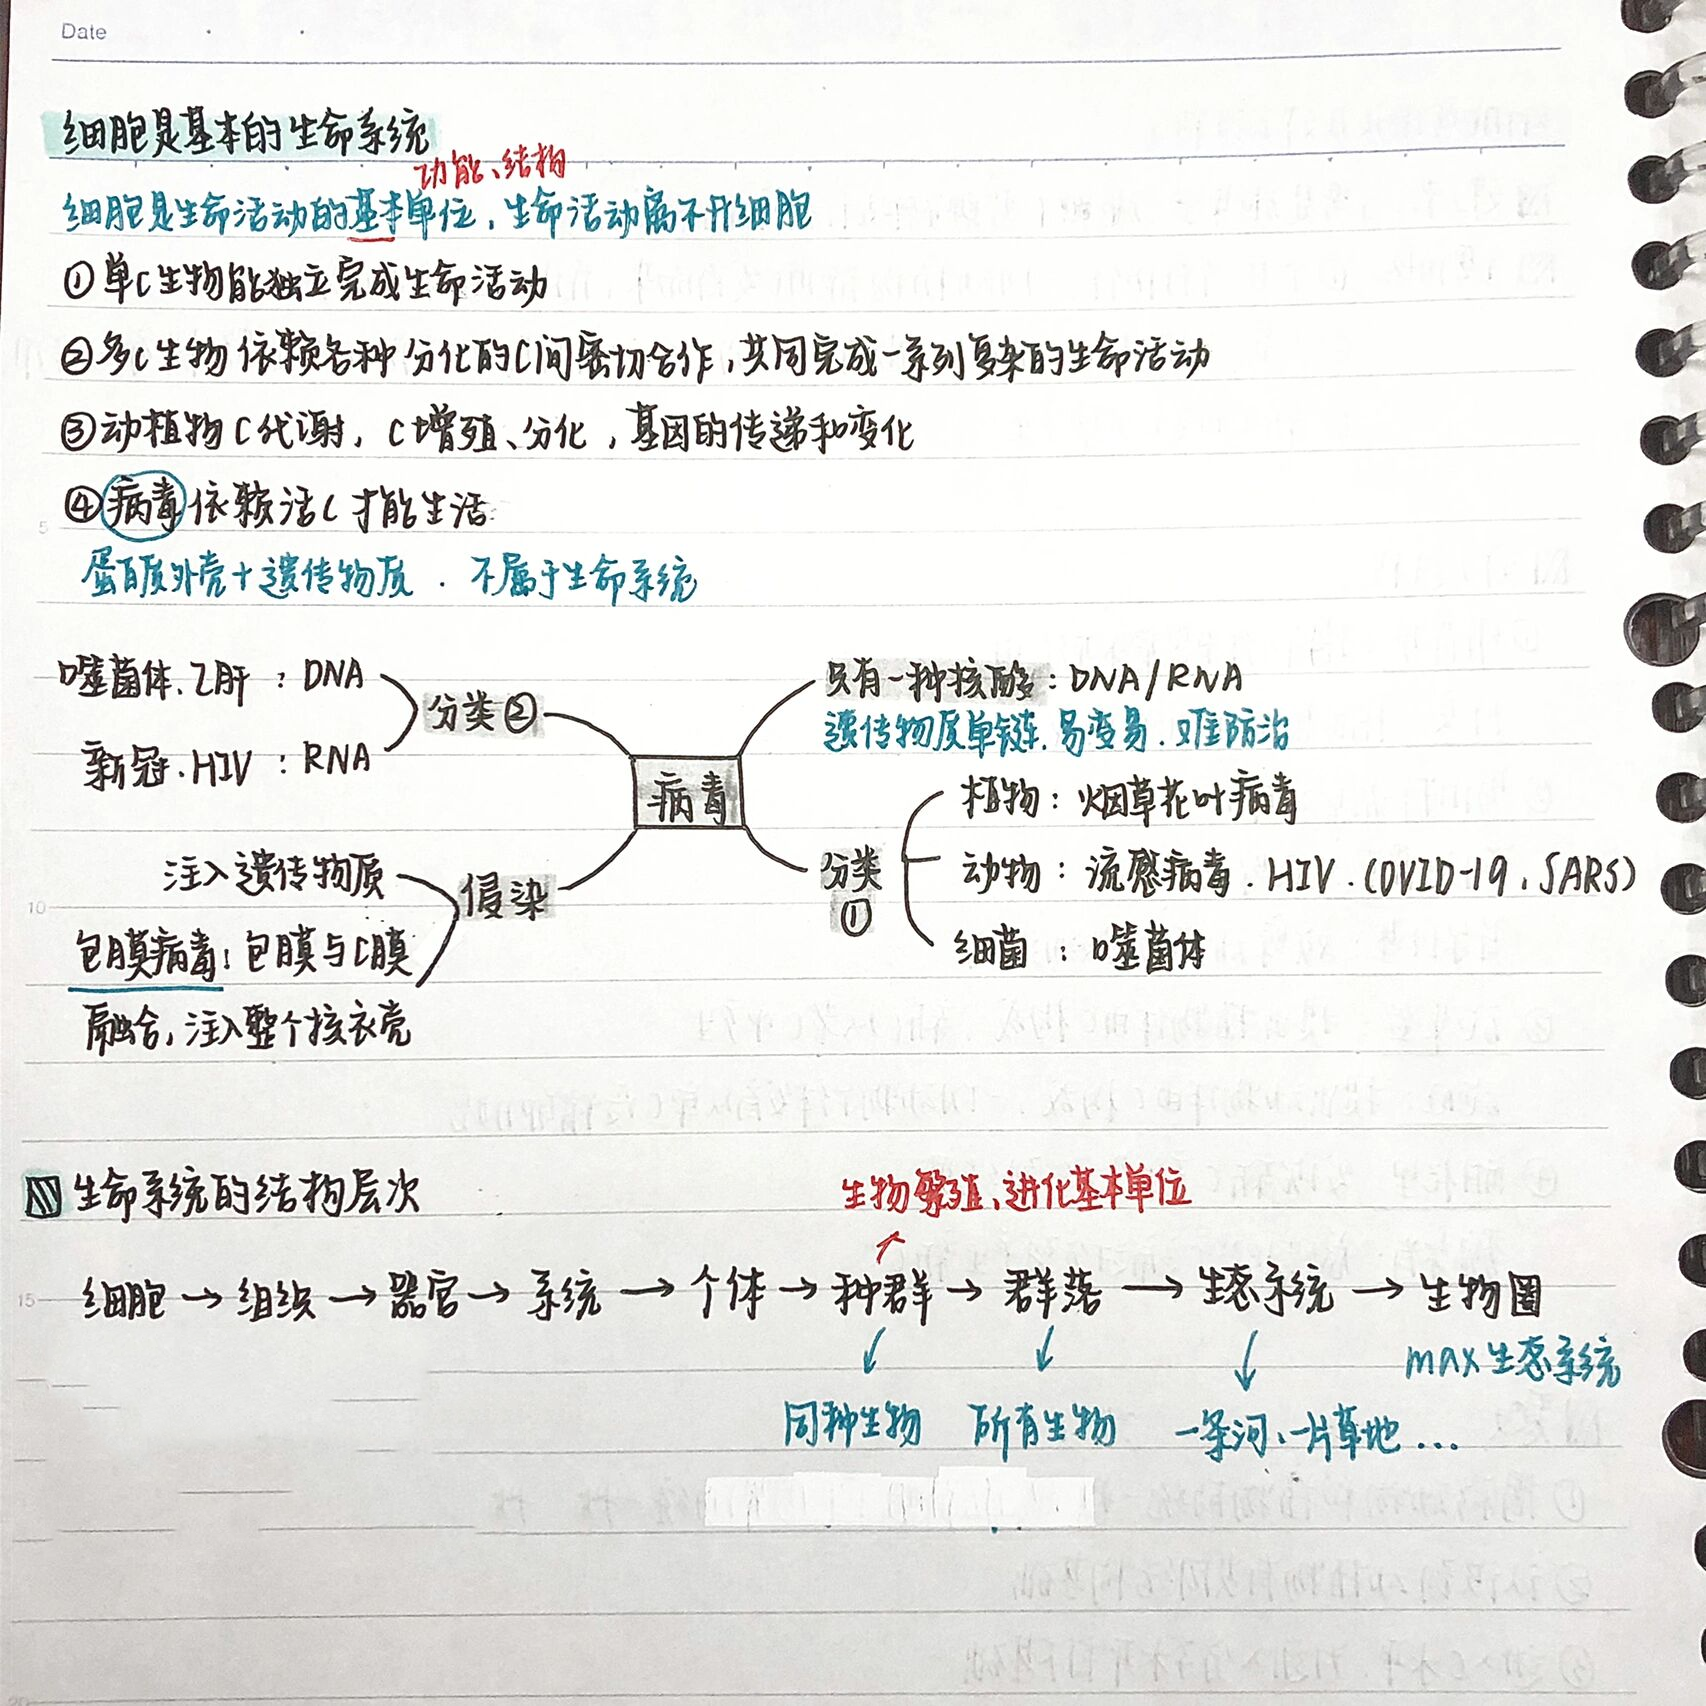 Date
细胞是基本的生命系统
功能、结构
细胞是生命活动的基本单位，生命活动离不开细胞
①单C生物能独立完成生命活动
②多C生物依赖各种分化的C间密切合作，共同完成一系列复杂的生命活动
③动植物C代谢，C增殖、分化，基因的传递和变化
④病毒依赖活C才能生活
5
蛋白质外壳+遗传物质．不属于生命系统
噬菌体．乙肝：DNA
新冠．HIV：RNA
分类②
病毒
只有一种核酸：DNA/RNA
遗传物质单链．易变易．难防治
分类①
植物：烟草花叶病毒
动物：流感病毒．HIV．COVID-19．SARS
细菌：噬菌体
侵染
注入遗传物质
10
包膜病毒：包膜与C膜
融合，注入整个核衣壳
生命系统的结构层次
生物繁殖、进化基本单位
15
细胞→组织→器官→系统→个体→种群→群落→生态系统→生物圈
max生态系统
同种生物 所有生物 一条河、一片草地...